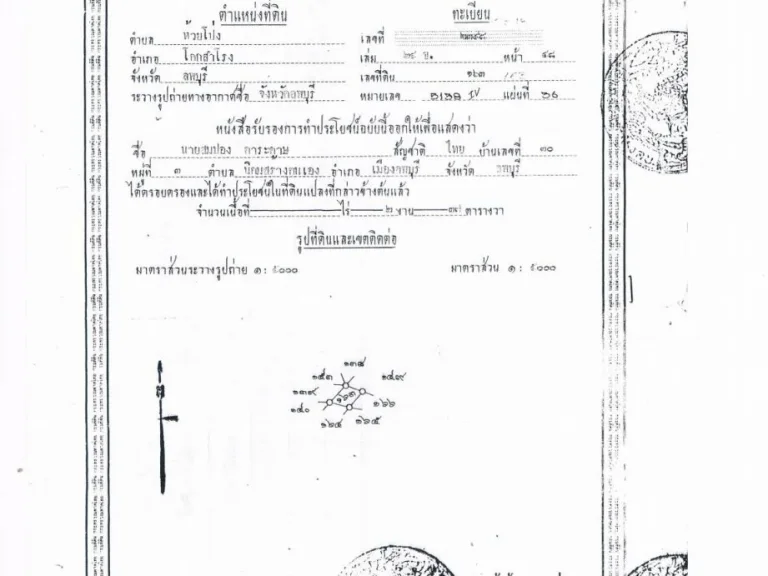 ตำแหน่งที่ดิน
ทะเบียน
ตำบล ห้วยโป่ง
เลขที่ ๒๓๔๘
อำเภอ โคกสำโรง
เล่ม ๒๔ ข. หน้า ๔๘
จังหวัด ลพบุรี
เลขที่ดิน ๑๖๓
ระวางรูปถ่ายทางอากาศชื่อ จังหวัดลพบุรี
หมายเลข ๕๑๓๑ IV แผ่นที่ ๖๑
หนังสือรับรองการทำประโยชน์ฉบับนี้ออกให้เพื่อแสดงว่า
ชื่อ นายสมปอง การะภาษ สัญชาติ ไทย บ้านเลขที่ ๓๐
หมู่ที่ ๓ ตำบล นิคมสร้างตนเอง อำเภอ เมืองลพบุรี จังหวัด ลพบุรี
ได้ครอบครองและได้ทำประโยชน์ในที่ดินแปลงที่กล่าวข้างต้นแล้ว
จำนวนเนื้อที่ ไร่ ๒ งาน ตารางวา
รูปที่ดินและเขตติดต่อ
มาตราส่วนระวางรูปถ่าย ๑ : ๕๐๐๐
มาตราส่วน ๑ : ๕๐๐๐
๑๓๘
๑๕๓ ๑๔๙
๑๓๙ ๑๖๓
๑๔๐ ๑๖๖
๑๖๔ ๑๖๕